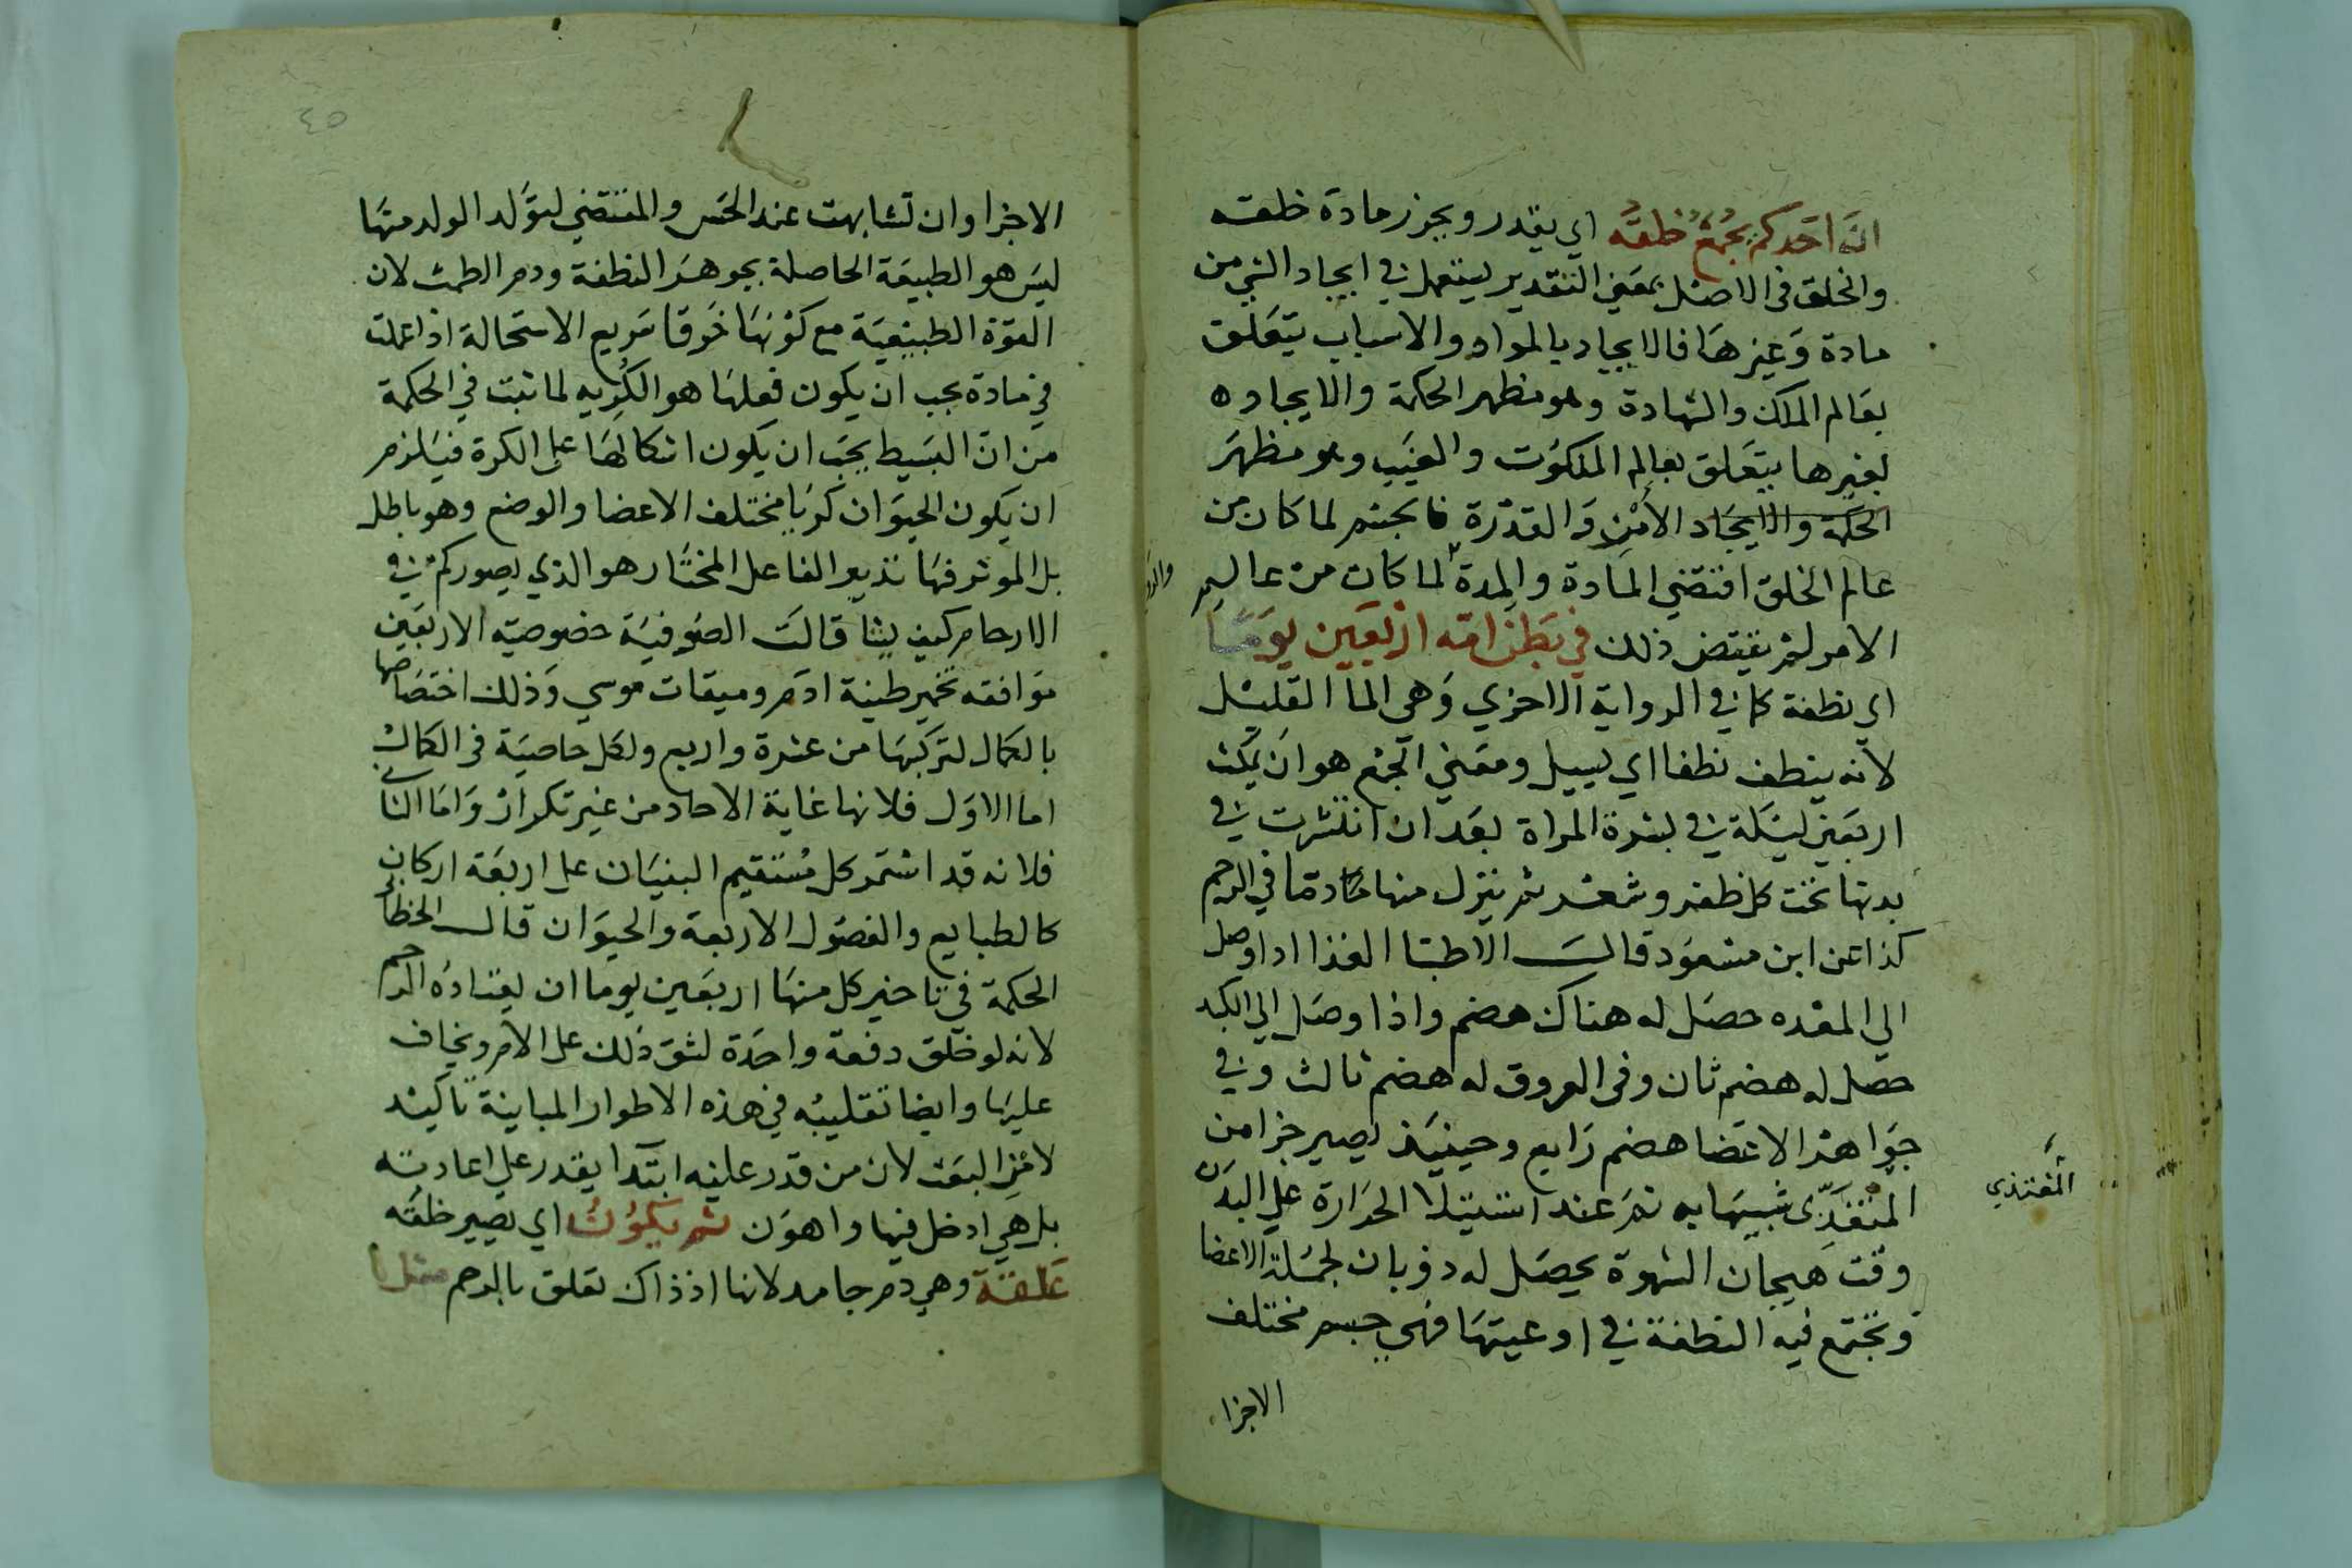 ان احدكم يجمع خلقه اي يقدر ويجوز مادة خلقه
والخلق في الاصل بمعني التقدير ليستعمل في ايجاد الشي من
مادة وغيرها فالايجاد بالمواد والاسباب يتعلق
بعالم الملك والشهادة وهو مظهر الحكمة والايجاد ه
لغيرها يتعلق بعالم الملكوت والغيب وهو مظهر
الحكمة والايجاد الأمر والقدرة فالجسم لما كان من
عالم الخلق اقتضي المادة والمدة لما كان من عالم
الامر لم يقتض ذلك في بطن امه اربعين يوما
اي نطفة كما في الرواية الاخري وهي الما القليل
لانه ينطف نطفا اي يسيل ومعني الجمع هو ان يمكث
اربعين ليلة في بشرة المراة بعد ان انتشرت في
بدنها تحت كل ظفر وشعر ثم ينزل منها مادتها في الرحم
كذا عن ابن مسعود قالت الاطبا الغذا اذا وصل
الي المعده حصل له هناك هضم واذا وصل الي الكبد
حصل له هضم ثان وفي العروق له هضم ثالث وفي
جواهر الاعضا هضم رابع وحينيذ يصير جزا من
المتغذي شبيها به ثم عند استيلا الحرارة علي البدن
وقت هيجان الشهوة يحصل له ذوبان لجملة الاعضا
وتجتمع فيه النطفة في اوعيتها فهي جسم مختلف
الاجزا
المغتذي
٤٥
الاجزا وان تشابهت عند الحس والمقتضي لتولد الولد منها
ليس هو الطبيعة الحاصلة بجوهر النطفة ودم الطمث لان
القوة الطبيعية مع كونها خرقا سريع الاستحالة اذا عملت
في مادة يجب ان يكون فعلها هو الكريه لما ثبت في الحكمة
من ان البسيط يجب ان يكون اشكالها علي الكرة فيلزم
ان يكون الحيوان كريا مختلف الاعضا والوضع وهو باطل
بل الموثر فيها تدبير الفاعل المختار هو الذي يصوركم في
الارحام كيف يشا قالت الصوفية خصوصية الاربعين
موافقه تخمير طينة ادم وميقات موسي وذلك اختصاصها
بالكمال لتركبها من عشرة واربع ولكل خاصية في الكمال
اما الاول فلانها غاية الاحاد من غير تكرار واما الثاني
فلانه قد استمر كل مستقيم البنيان علي اربعة اركان
كالطبايع والفصول الاربعة والحيوان قال الخطابي
الحكمة في تاخير كل منها اربعين يوما ان يعتاده الرحم
لانه لو خلق دفعة واحدة لشق ذلك علي الام ويخاف
عليها وايضا تقليبه في هذه الاطوار المباينة تاكيد
لامر البعث لان من قدر عليه ابتدا يقدر علي اعادته
بل هي ادخل فيها واهون ثم يكون اي يصير خلقه
علقة وهي دم جامد لانها اذ ذاك تعلق بالرحم مثل